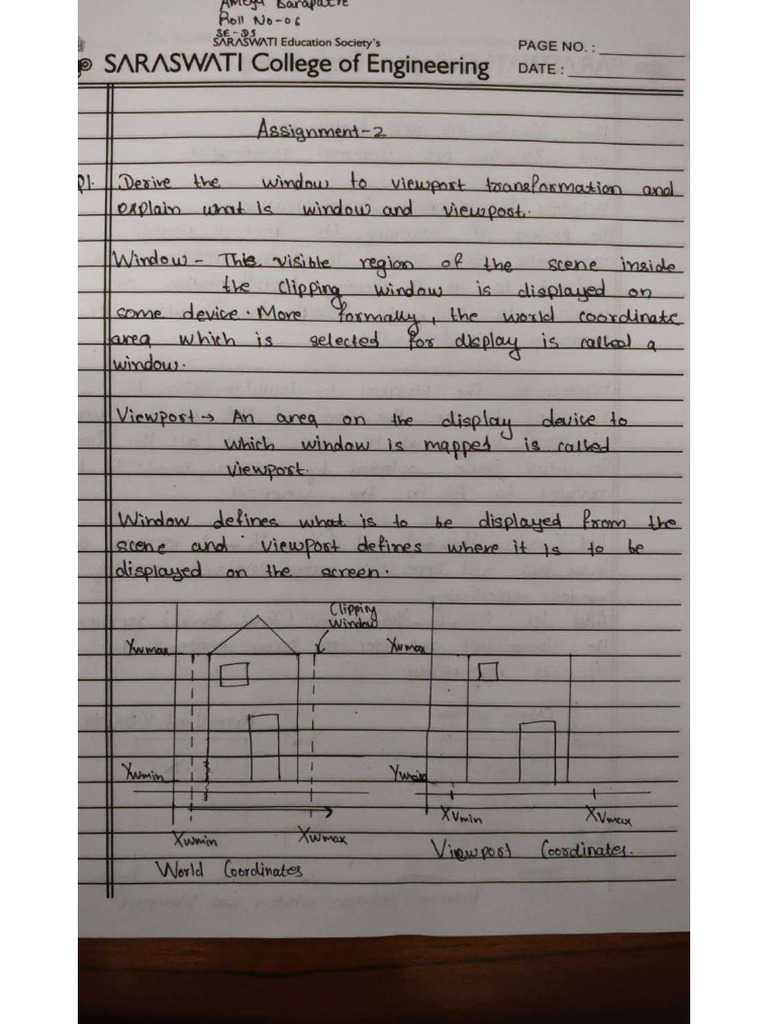 Ameya Barapatre
Roll No-06
SE-DS
SARASWATI Education Society's
SARASWATI College of Engineering
PAGE NO. :
DATE :
Assignment-2
Q1. Derive the window to viewport transformation and
explain what is window and viewport.
Window - This visible region of the scene inside
the clipping window is displayed on
some device. More formally, the world coordinate
area which is selected for display is called a
window.
Viewport → An area on the display device to
which window is mapped is called
viewport.
Window defines what is to be displayed from the
scene and viewport defines where it is to be
displayed on the screen.
Clipping
Window
Xwmax
Xwmax
Xwmin
Ywmin
Xwmin
Xwmax
XVmin
XVmax
World Coordinates
Viewport Coordinates.